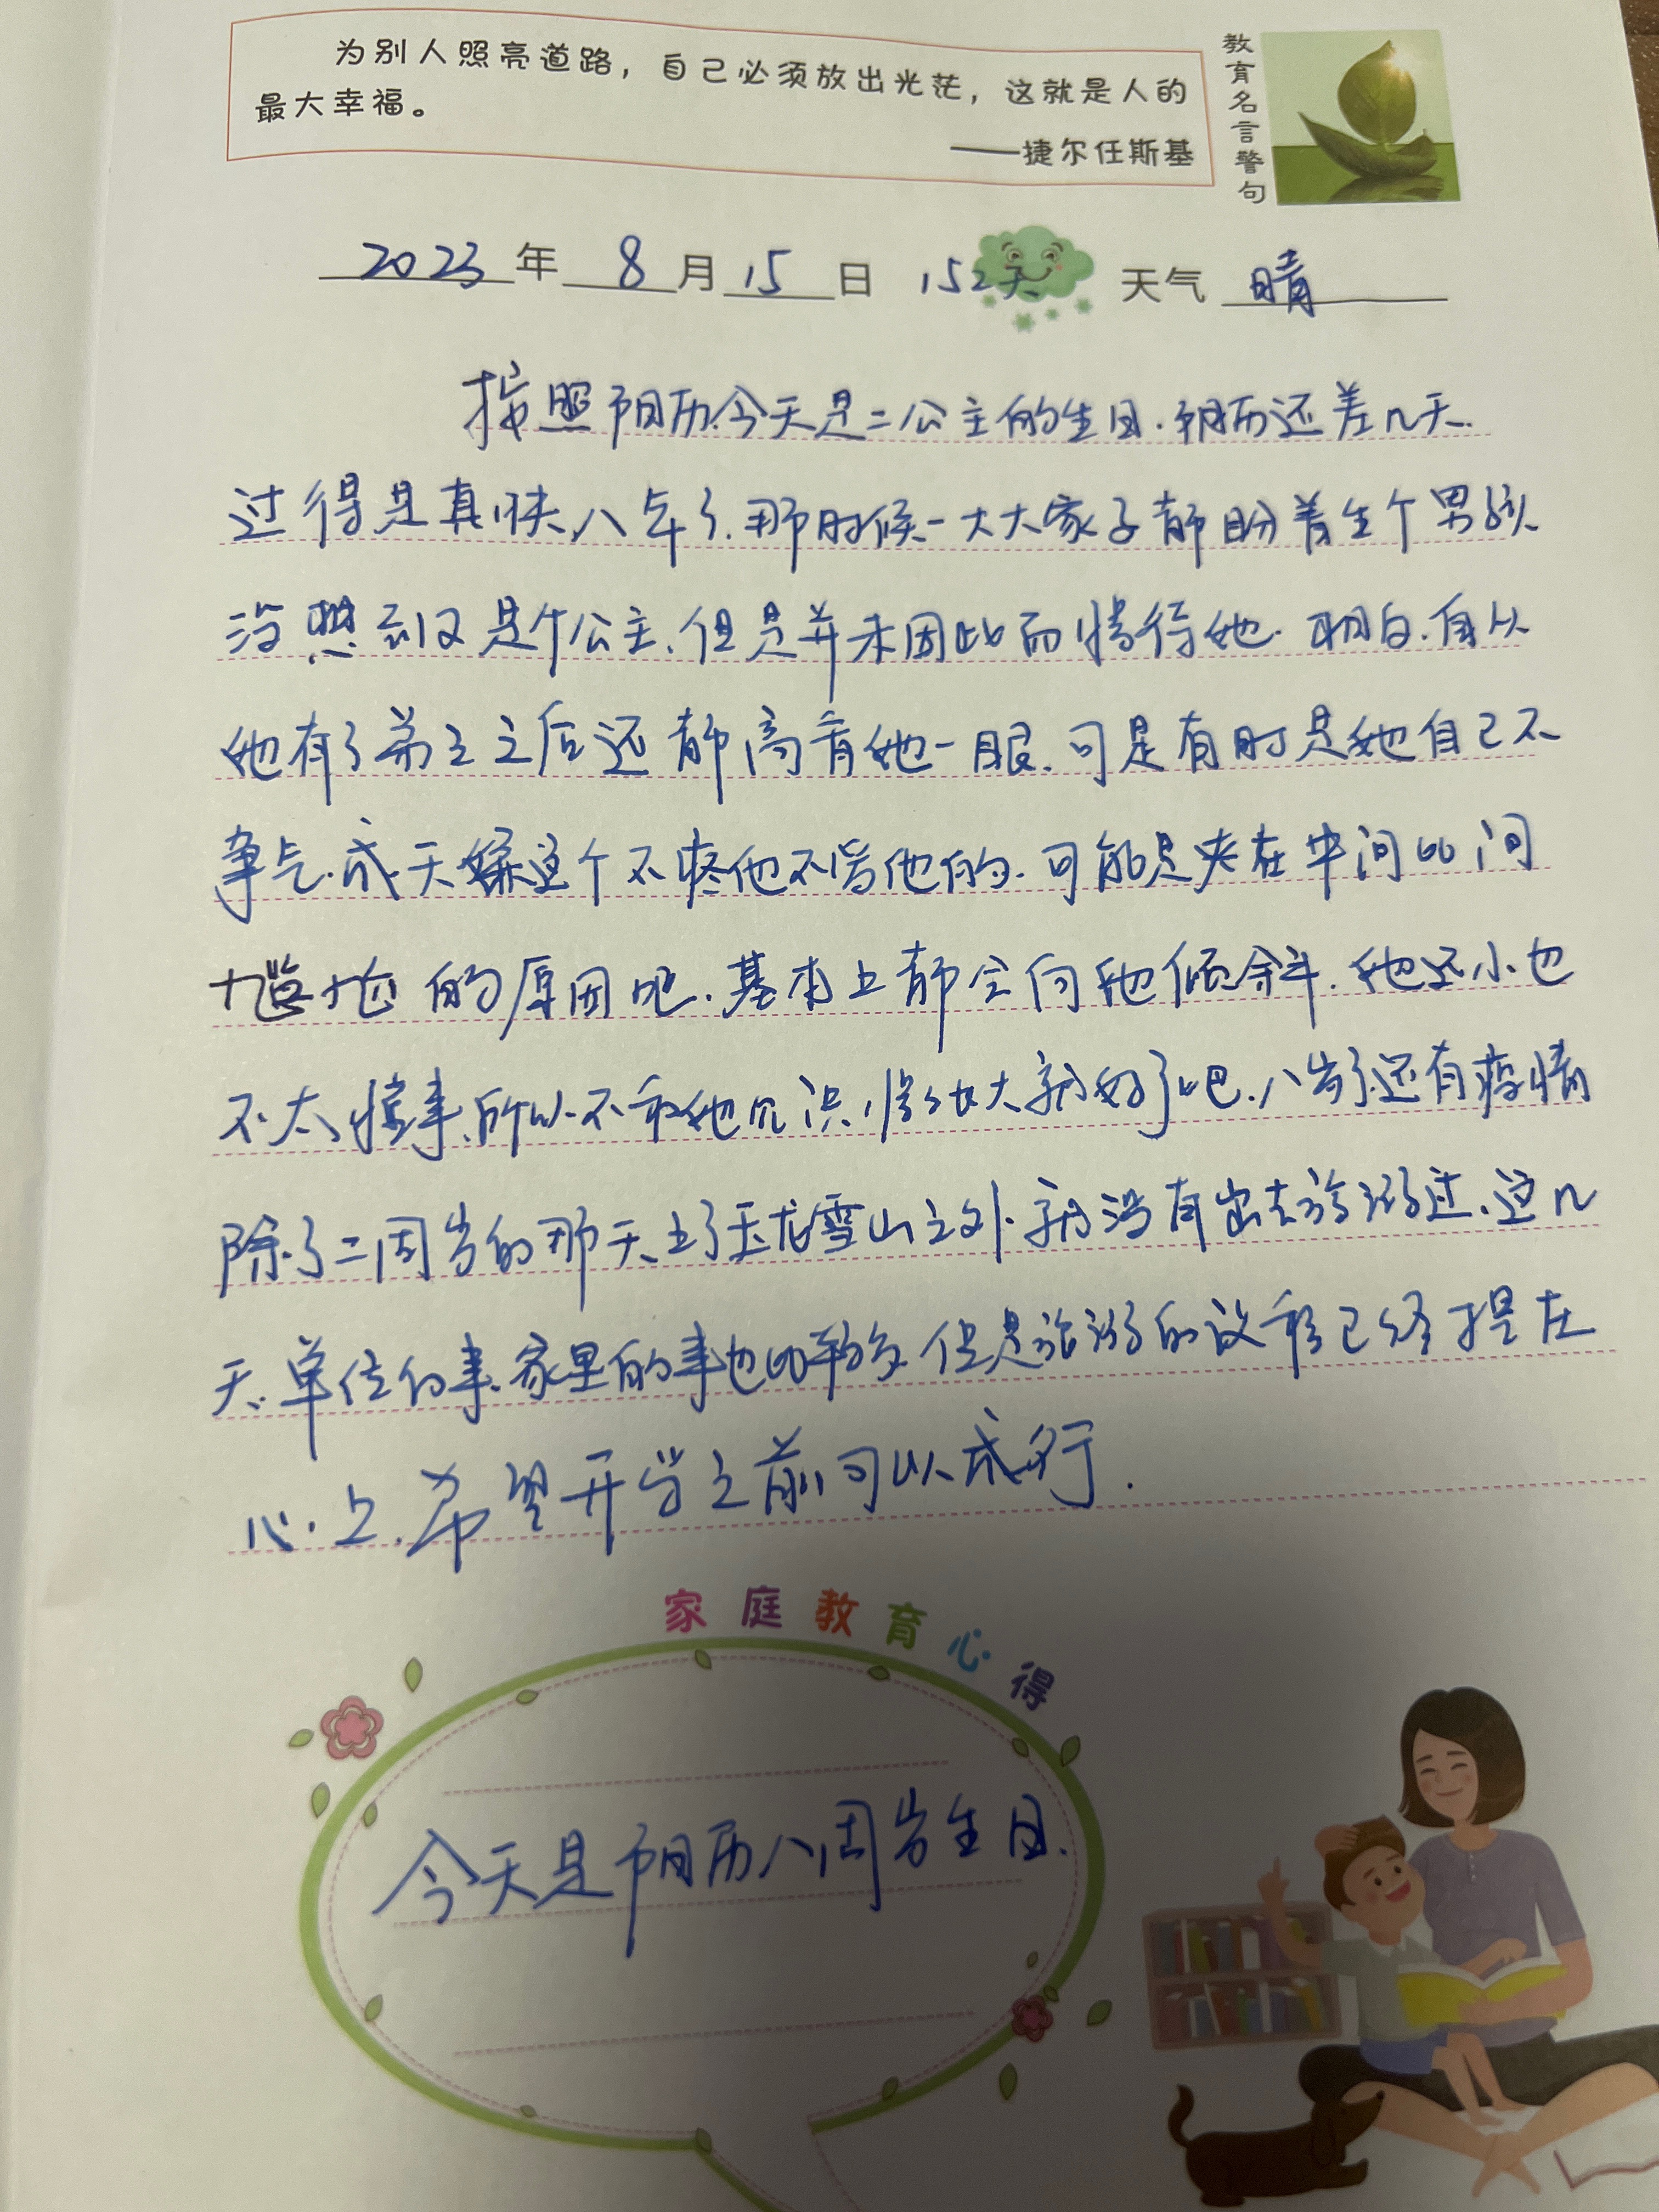 为别人照亮道路，自己必须放出光茫，这就是人的
最大幸福。
——捷尔任斯基
教育名言警句
2023年8月15日 152天 天气 晴
按照阳历今天是二公主的生日.阴历还差几天.
过得是真快,八年了.那时候一大大家子都盼着生个男孩
没想到又是个公主.但是并未因此而惰待她.明白.自从
她有了弟弟之后还都高看她一眼.可是有时是她自己不
争气.成天嫌这个不疼他不管他的.可能是夹在中间的间
尴尬的原因吧.基本上都会向她倾斜.她还小也
不太懂事.所以不和她一般见识,长大就好了吧.八岁了还有疫情
除了二周岁的那天上了玉龙雪山之外.就没有出去旅游过.这几
天.单位的事.家里的事也比较多 但是旅游的议程已经提在
心上.希望开学之前可以成行.
家庭教育心得
今天是阳历八周岁生日.